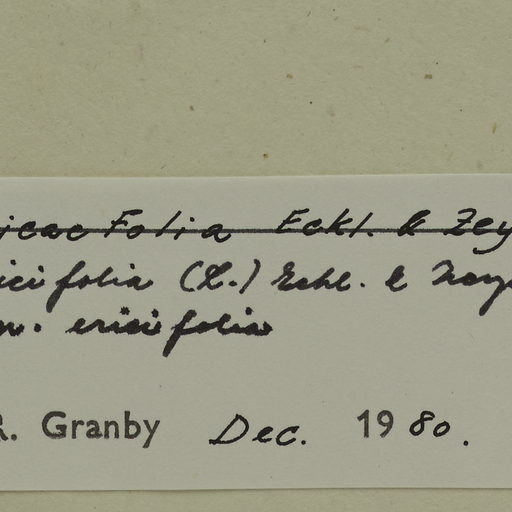 icae Folia Eckl. & Zey
ici folia (L.) Eckl. & Zey
n. ericifolia
R. Granby Dec. 1980.